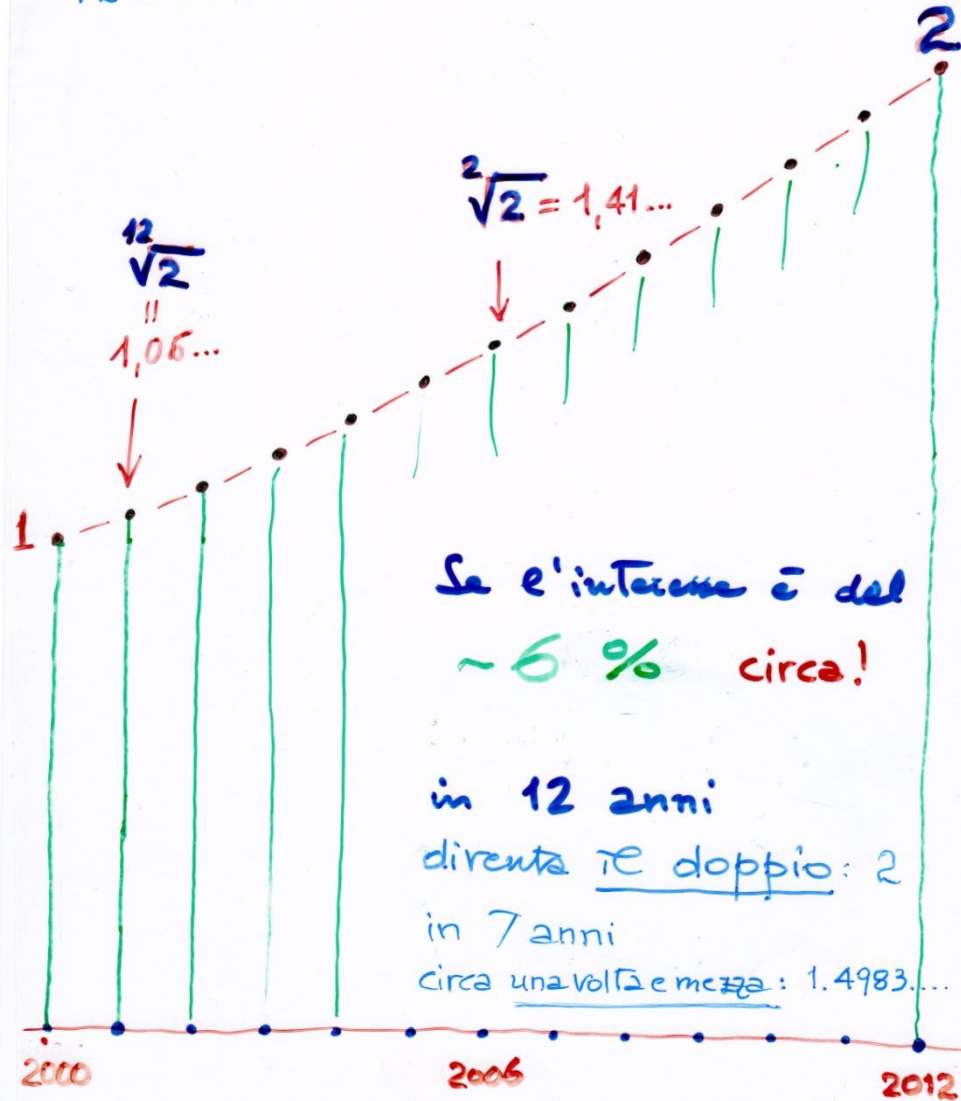 2
²√2 = 1,41...
¹²√2
"
1,06...
1
Se l'interesse è del
~ 6 % circa!
in 12 anni
diventa il doppio: 2
in 7 anni
circa una volta e mezza: 1.4983....
2000 2006 2012